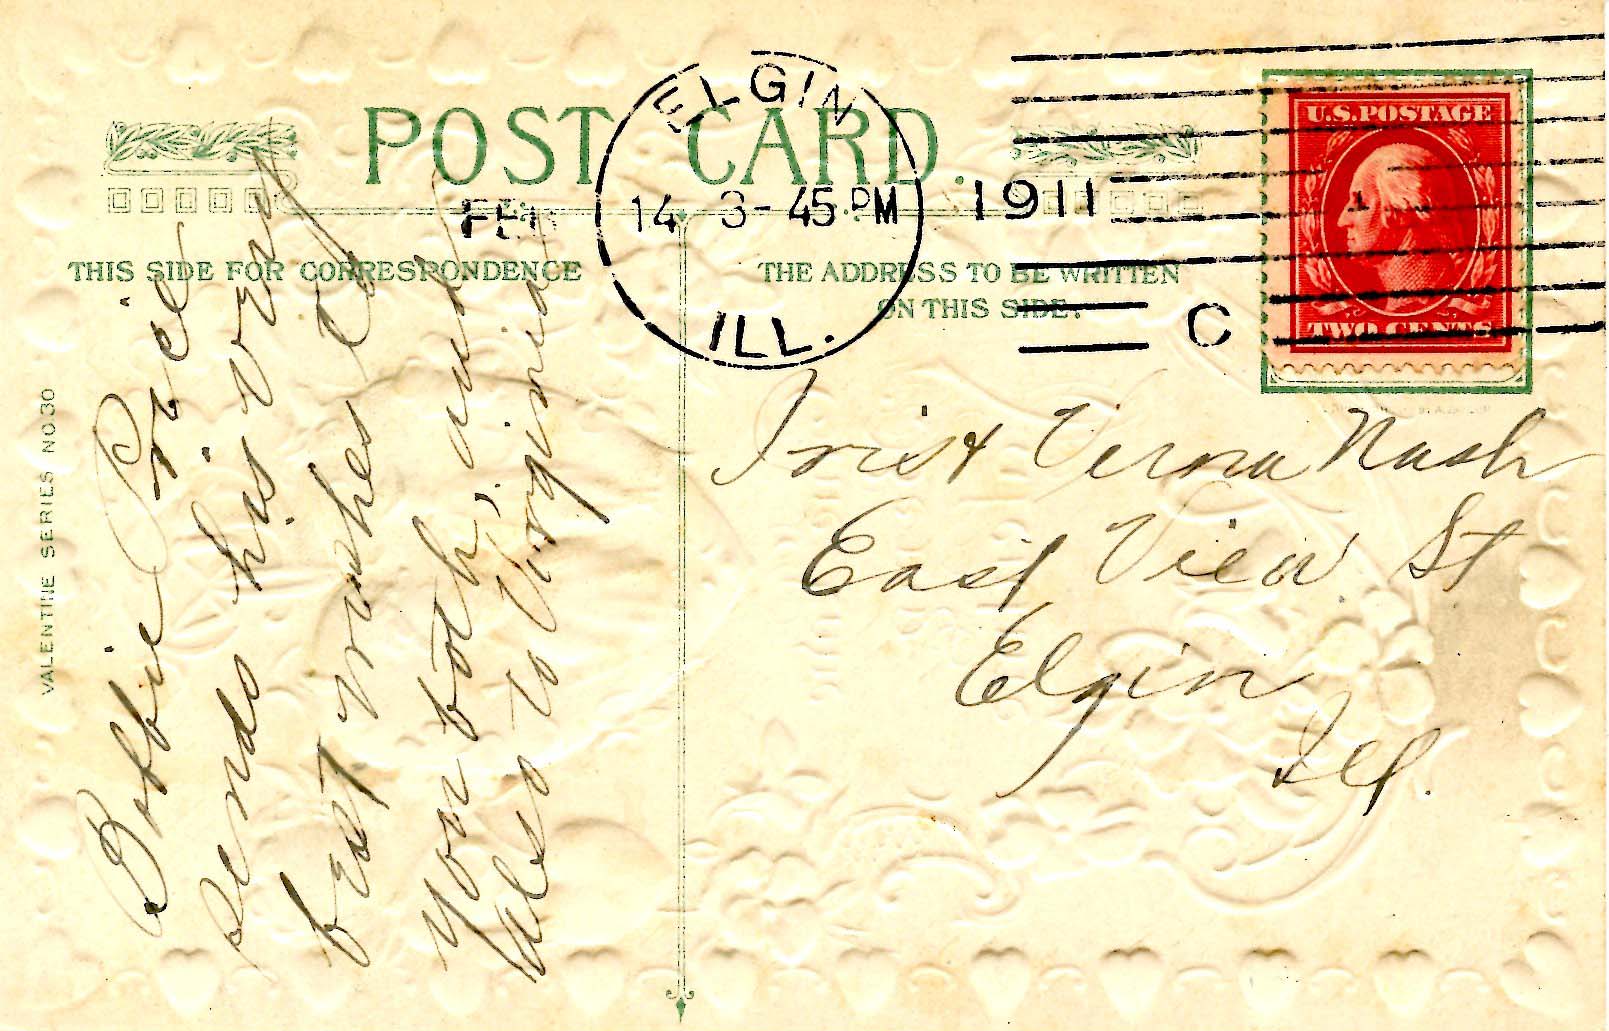 POST CARD.
ELGIN
FEB 14 3-45 PM 1911
ILL.
C
U.S. POSTAGE
TWO CENTS
THIS SIDE FOR CORRESPONDENCE
THE ADDRESS TO BE WRITTEN
ON THIS SIDE.
VALENTINE SERIES NO 30
Bobbie Price
sends his very
best wishes to
you both, and
also to Virginia
Iris & Verna Nash
East View St
Elgin
Ill.